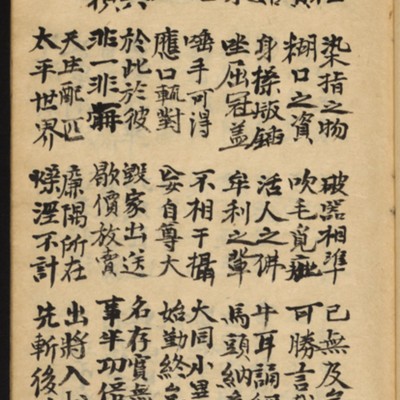 染指之物 破器相準 已無及
糊口之資 吹毛覓疵 可勝言
身操版鍤 活人之佛 牛耳誦
坐屈冠盖 牟利之輩 馬頭納
唾手可得 不相干攝 大同小異
應口輒對 妄自尊大 始勤終
於此於彼 毀家出送 名存實無
非一非 歇價放賣 事半功倍
天庄配匹 廉隅所在 出將入
太平世界 燥溼不計 先斬後